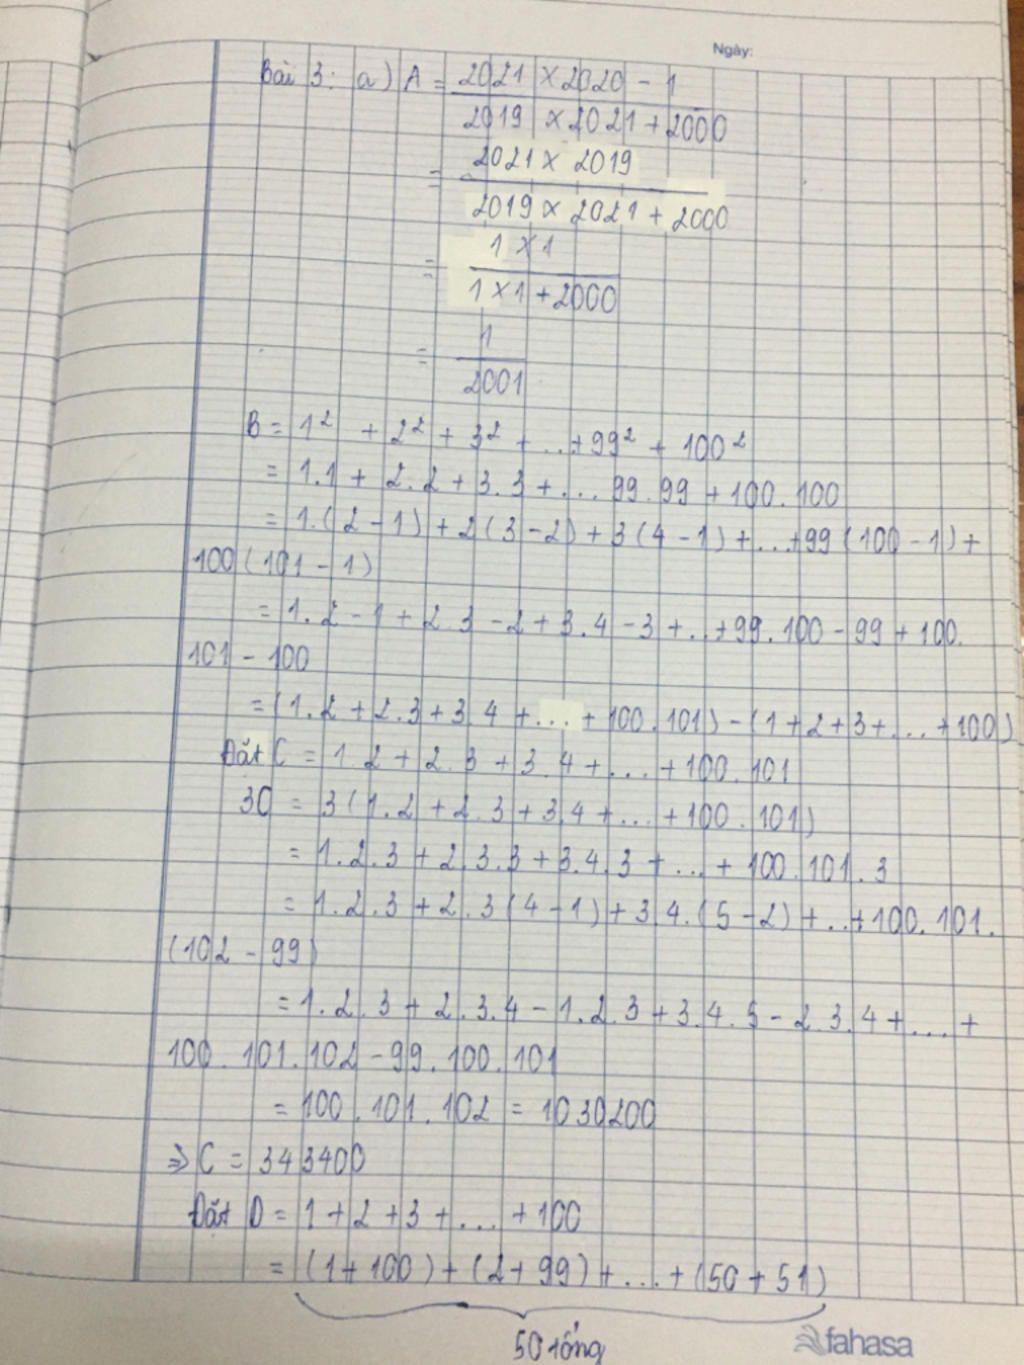 Ngày:
Bài 3: a) A = 2021 × 2020 - 1
2019 × 2021 + 2000
= 2021 × 2019
2019 × 2021 + 2000
= 1 × 1
1 × 1 + 2000
= 1
2001
B = 1² + 2² + 3² + ... + 99² + 100²
= 1.1 + 2.2 + 3.3 + ... 99.99 + 100.100
= 1.(2 - 1) + 2(3 - 2) + 3(4 - 1) + ... + 99(100 - 1) +
100(101 - 1)
= 1.2 - 1 + 2.3 - 2 + 3.4 - 3 + ... + 99.100 - 99 + 100.
101 - 100
= (1.2 + 2.3 + 3.4 + ... + 100.101) - (1 + 2 + 3 + ... + 100)
Đặt C = 1.2 + 2.3 + 3.4 + ... + 100.101
3C = 3(1.2 + 2.3 + 3.4 + ... + 100.101)
= 1.2.3 + 2.3.3 + 3.4.3 + ... + 100.101.3
= 1.2.3 + 2.3(4 - 1) + 3.4.(5 - 2) + ... + 100.101.
(102 - 99)
= 1.2.3 + 2.3.4 - 1.2.3 + 3.4.5 - 2.3.4 + ... +
100.101.102 - 99.100.101
= 100.101.102 = 1030200
⇒ C = 343400
Đặt D = 1 + 2 + 3 + ... + 100
= (1 + 100) + (2 + 99) + ... + (50 + 51)
50 tổng
fahasa